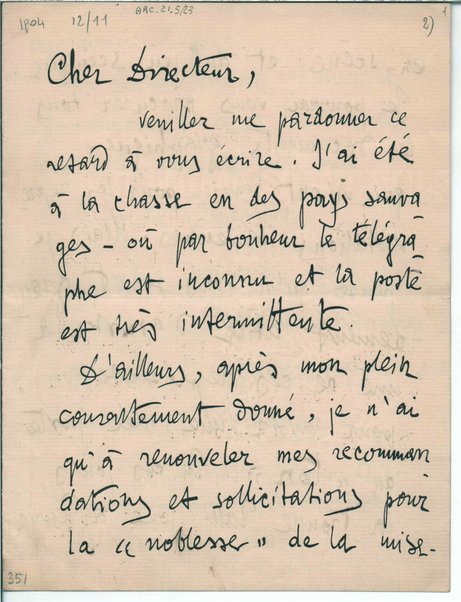 1904 12/11
ARC. 21-5/23
1
2)
Cher Directeur,
veuillez me pardonner ce
retard à vous écrire. J'ai été
à la chasse en des pays sauva
ges - où par bonheur le télégra
phe est inconnu et la poste
est très intermittente.
D'ailleurs, après mon plein
consentement donné, je n'ai
qu'à renouveler mes recomman
dations et sollicitations pour
la "noblesse" de la mise-
351